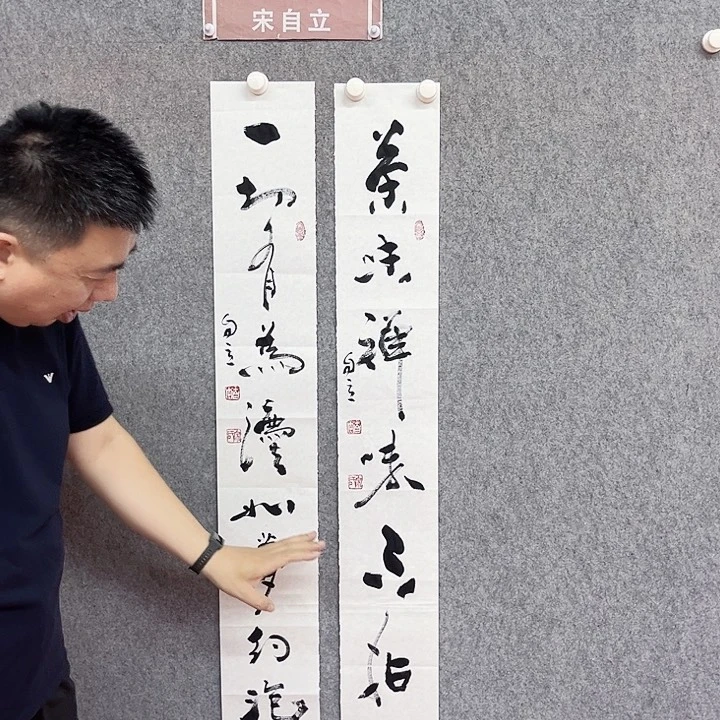 宋自立
茶味禪味
自立
一切有為灋如夢幻泡
自立